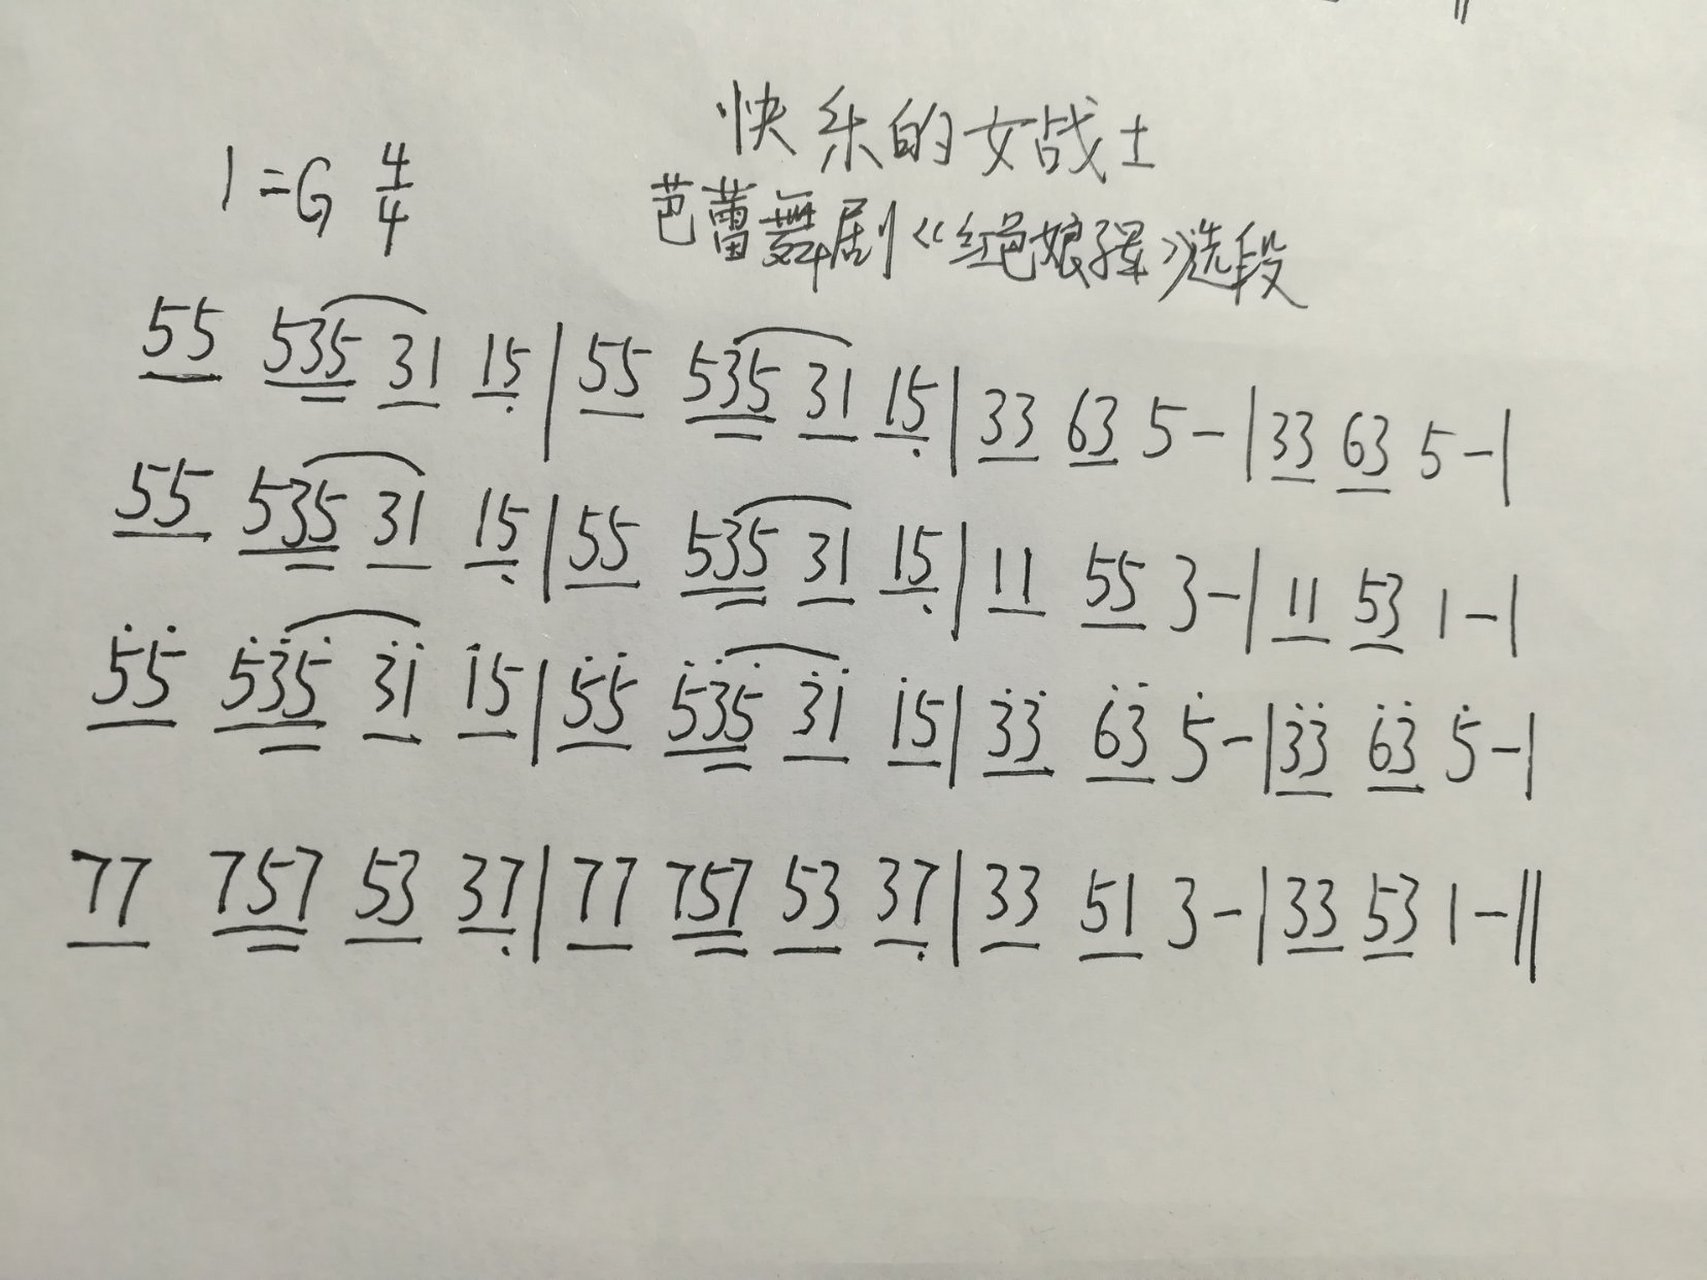 快乐的女战士
1=G 4/4
芭蕾舞剑《红色娘子军》选段
55 535 31 15 | 55 535 31 15 | 33 63 5- | 33 63 5- |
55 535 31 15 | 55 535 31 15 | 11 55 3- | 11 53 1- |
5̇5̇ 5̇3̇5̇ 3̇1̇ 1̇5 | 5̇5̇ 5̇3̇5̇ 3̇1̇ 1̇5 | 3̇3̇ 6̇3̇ 5̇- | 3̇3̇ 6̇3̇ 5̇- |
77 757 53 37 | 77 757 53 37 | 33 51 3- | 33 53 1- ||